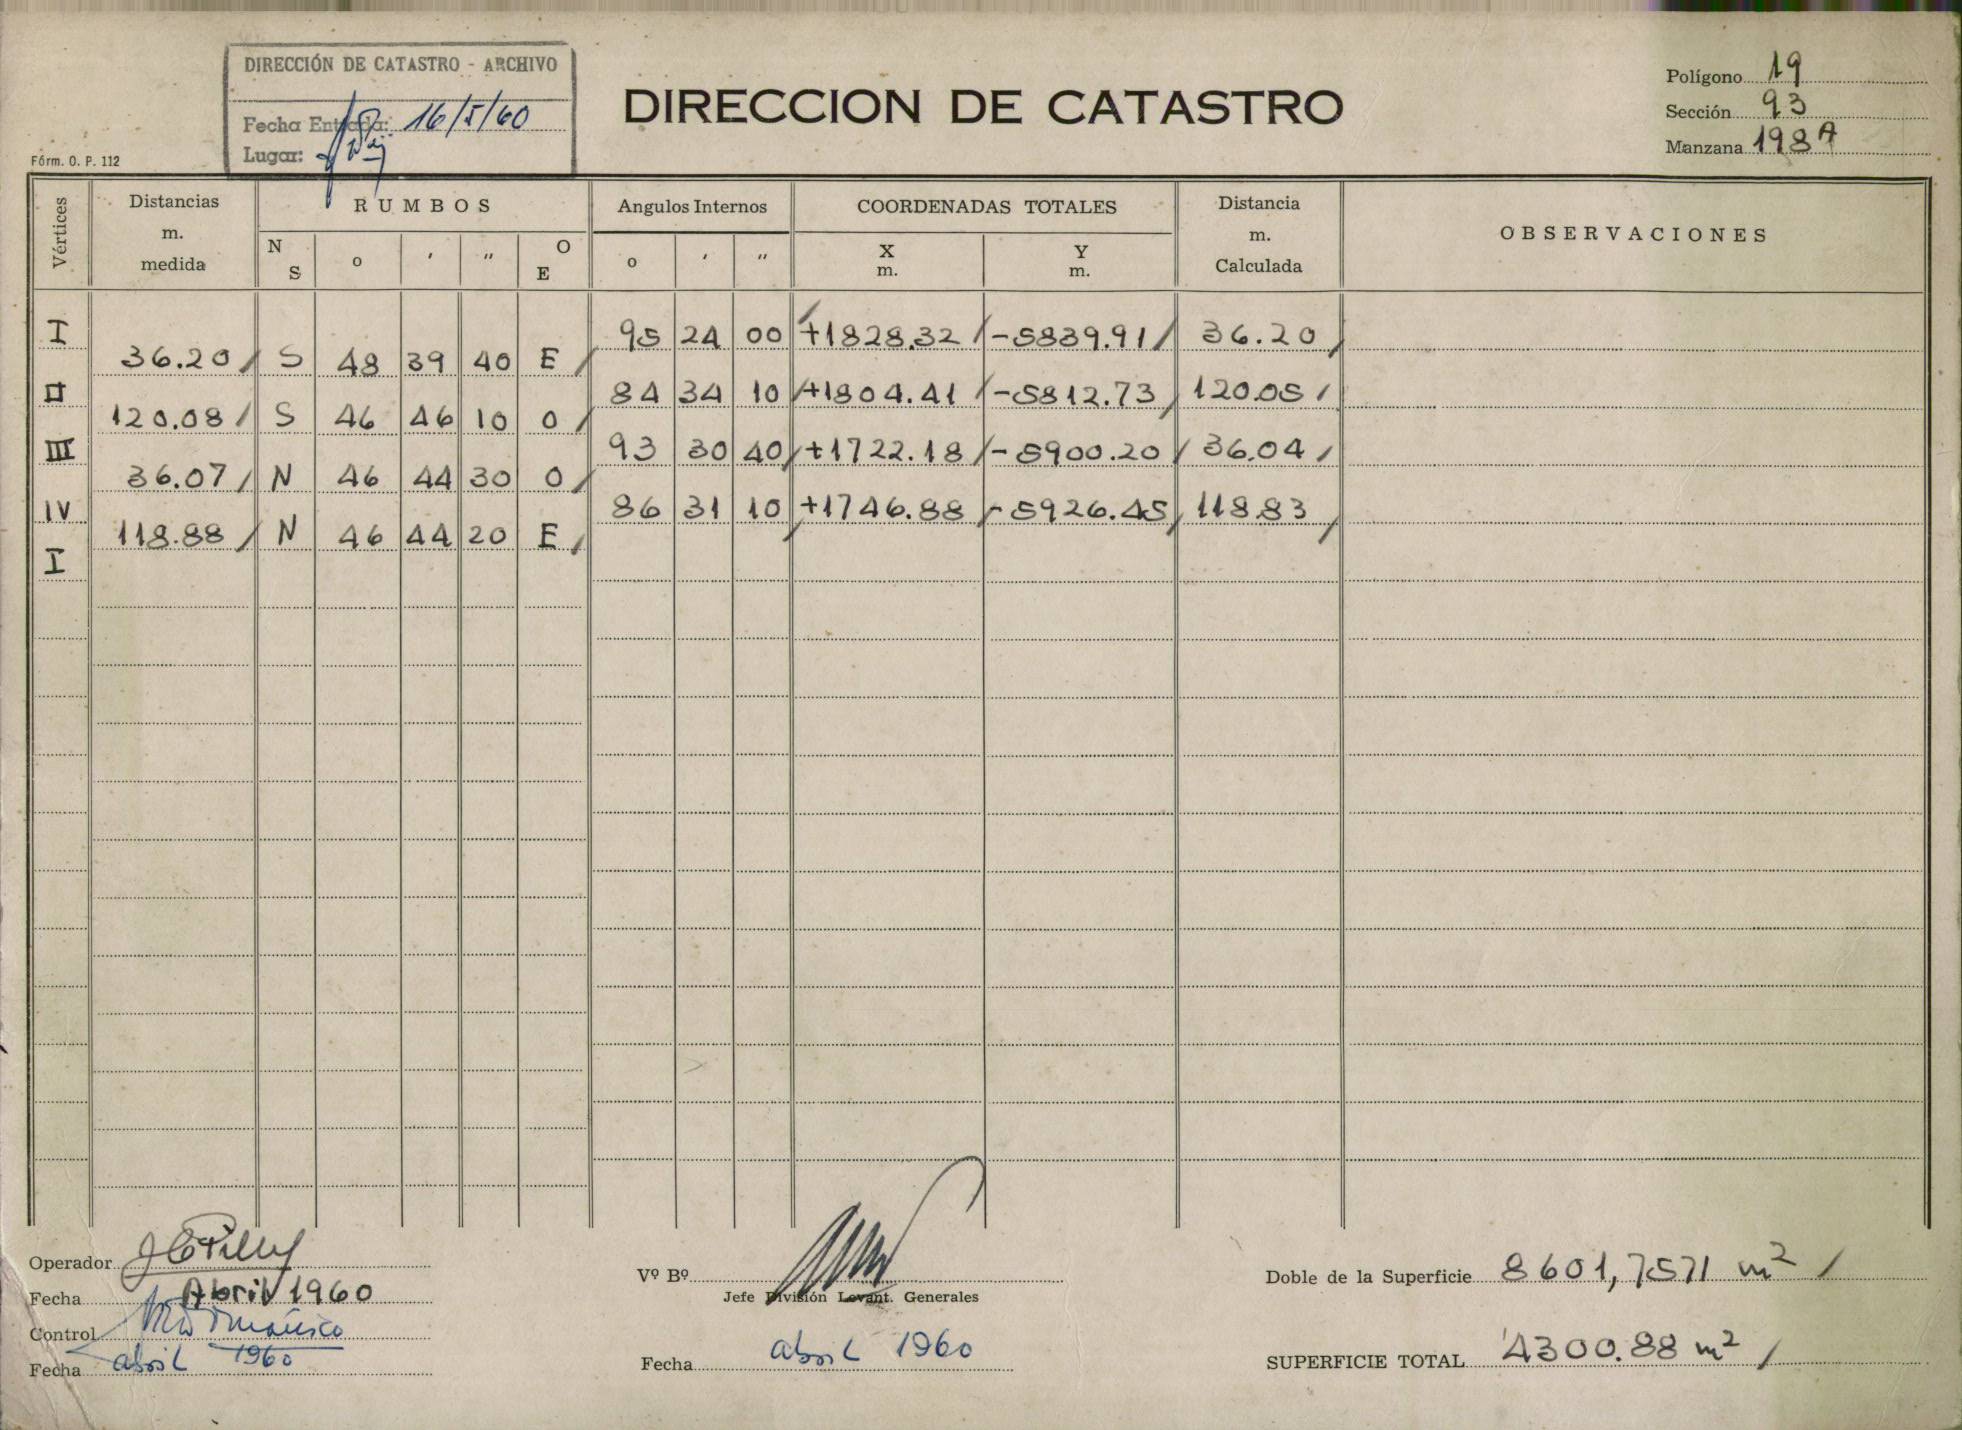 DIRECCIÓN DE CATASTRO - ARCHIVO
Fecha Entrada: 16/5/60
Lugar:
Fórm. O. P. 112
DIRECCION DE CATASTRO
Polígono 19
Sección 93
Manzana 198A
Vértices Distancias m. medida RUMBOS Angulos Internos COORDENADAS TOTALES Distancia m. Calculada OBSERVACIONES
N S o ' '' O E o ' '' X m. Y m.
I 95 24 00 +1828.32 / -5839.91 / 36.20 /
36.20 / S 48 39 40 E /
II 84 34 10 / +1804.41 / -5812.73 / 120.05 /
120.08 / S 46 46 10 O /
III 93 30 40 / +1722.18 / -5900.20 / 36.04 /
36.07 / N 46 44 30 O /
IV 86 31 10 / +1746.88 / -5926.45 / 118.83 /
118.88 / N 46 44 20 E /
I
Operador
Fecha Abril 1960
Control
Fecha abril 1960
Vº Bº
Jefe División Levant. Generales
Fecha abril 1960
Doble de la Superficie 8601,7571 m² /
SUPERFICIE TOTAL 4300.88 m² /